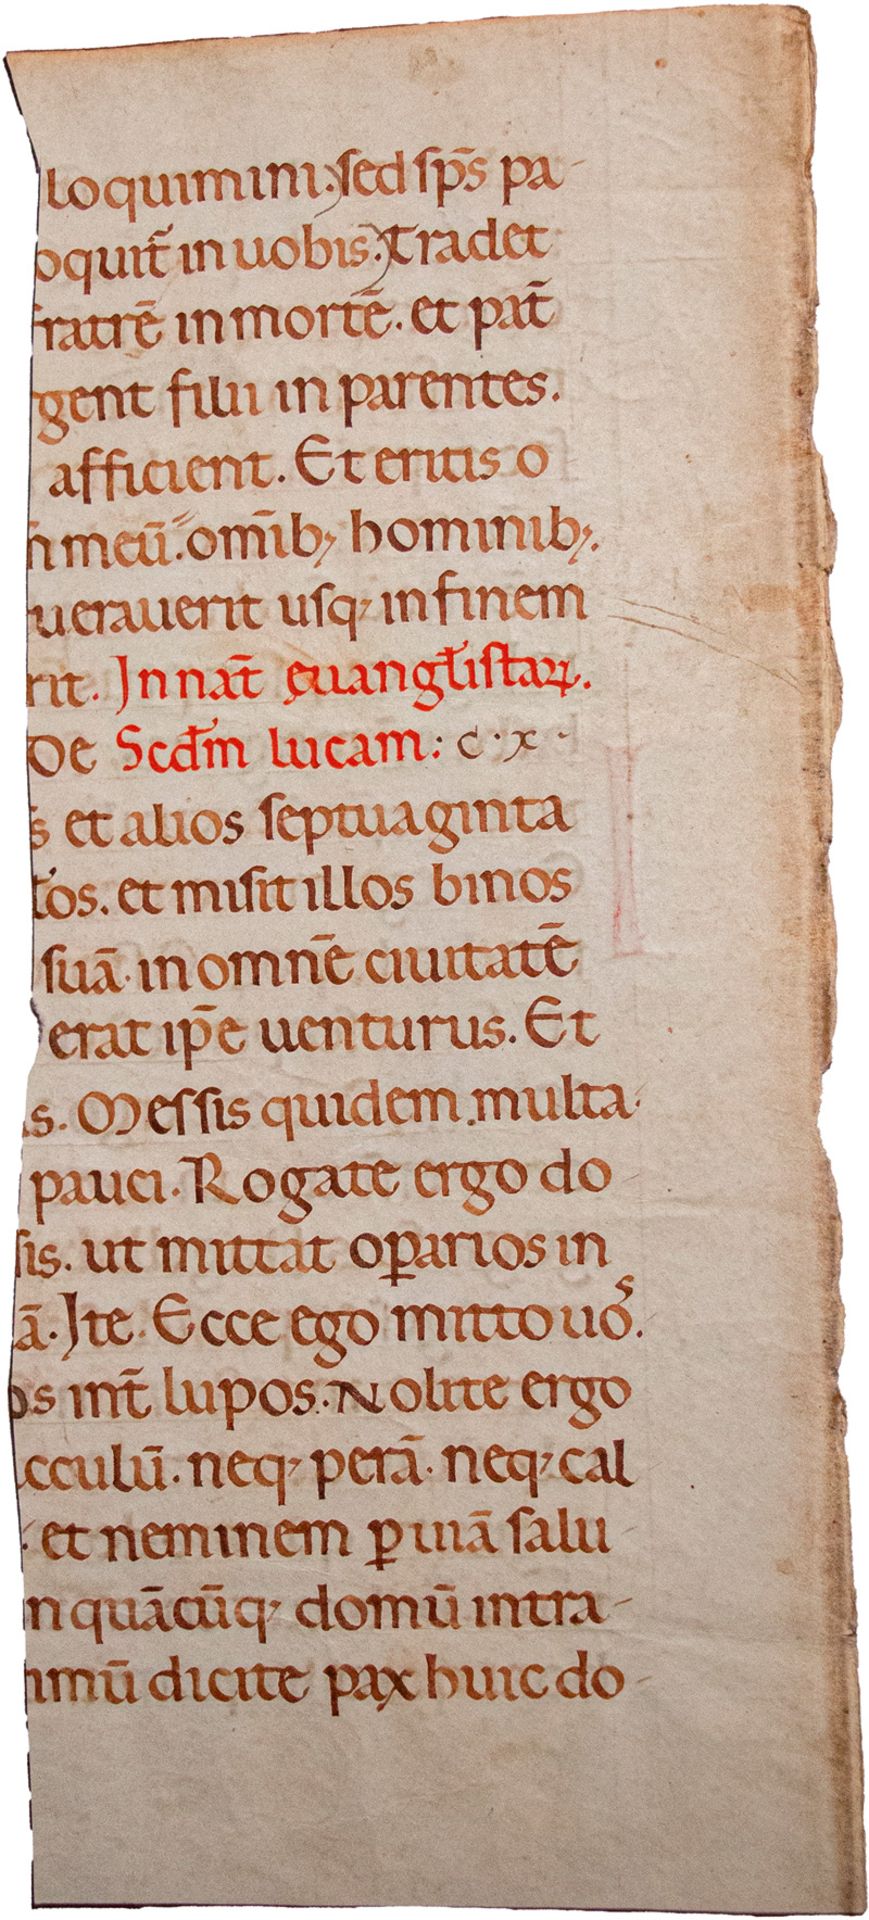 loquimini. sed sp̄s pa-
oquit̄ in uobis. Tradet
ratrē in mortē. et pat̄
gent filii in parentes.
afficient. Et eritis o
n̄ meū. om̄ib; hominib;.
uerauerit usq; in finem
rit. In nat̄ euangl̄istaꝝ.
De Scd̄m lucam: c.x.
s̄ et alios septuaginta
l̄os. et misit illos binos
suā. in omnē ciuitatē
erat ip̄e uenturus. Et
s. Messis quidem multa.
pauci. Rogate ergo do
sis. ut mittat oꝑarios in
ā. Ite. Ecce ego mitto uoˢ.
os int̄ lupos. Nolite ergo
cculū. neq; perā. neq; cal
et neminem ꝑ uiā salu-
n quācūq; domū intra-
mū dicite pax huic do-